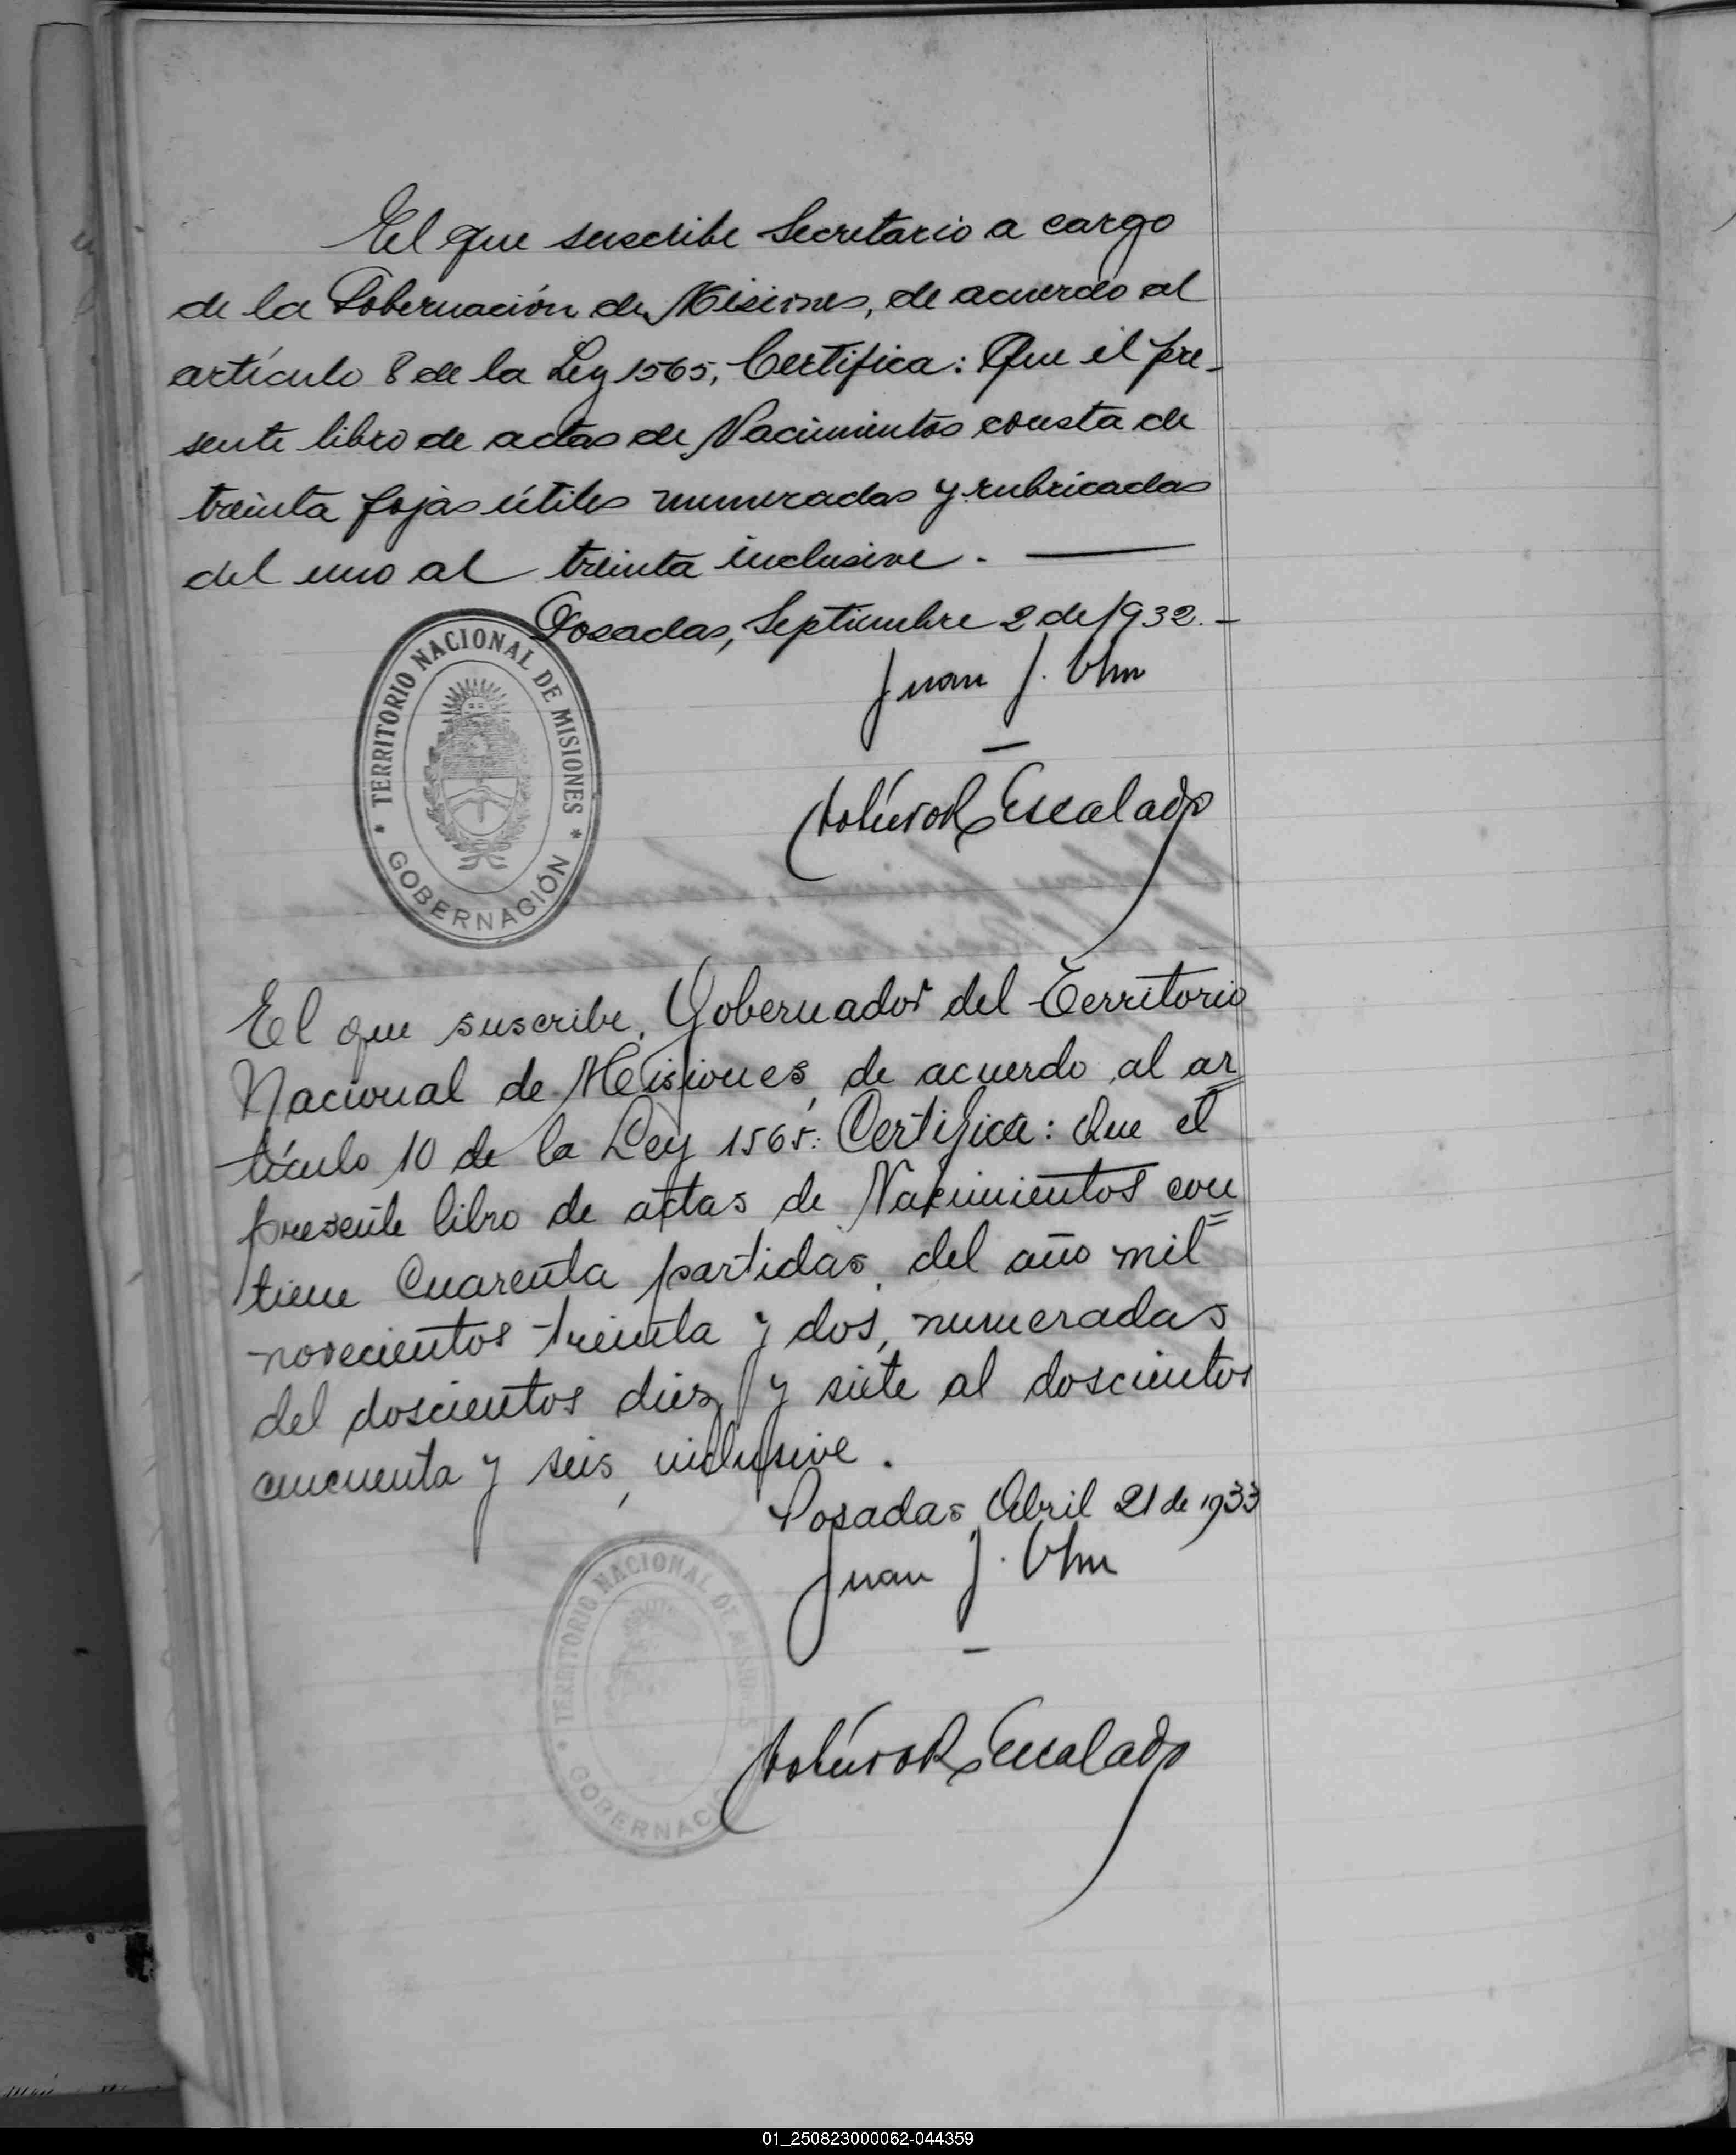 El que suscribe Secretario a cargo
de la Gobernación de Misiones, de acuerdo al
artículo 8 de la Ley 1565, Certifica: Que el pre-
sente libro de actas de Nacimientos consta de
treinta fojas útiles numeradas y rubricadas
del uno al treinta inclusive. —
Posadas, Septiembre 2 de 1932. -
TERRITORIO NACIONAL DE MISIONES
GOBERNACIÓN
Juan J.
Escalada
El que suscribe, Gobernador del Territorio
Nacional de Misiones, de acuerdo al ar
tículo 10 de la Ley 1565: Certifica: Que el
presente libro de actas de Nacimientos con
=
tiene Cuarenta partidas, del año mil
novecientos treinta y dos, numeradas
del doscientos diez y siete al doscientos
cincuenta y seis, inclusive.
Posadas, Abril 21 de 1933
Juan J.
TERRITORIO NACIONAL DE MISIONES
GOBERNACIÓN
Escalada
01_250823000062-044359